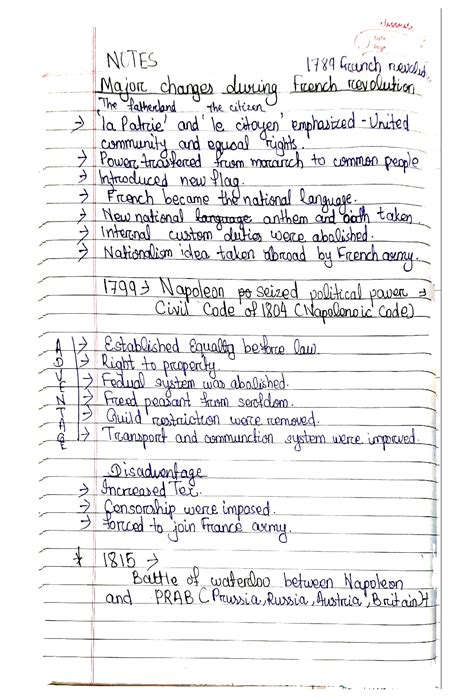 classmate
Date
Page
NOTES
1789 French revolut.
Major changes during French revolution
The fatherland the citizen
→ 'la Patrie' and 'le citoyen' emphasized - United
community and equal rights.
→ Power trasfered from monarch to common people
→ Introduced new flag.
→ French became the national language.
→ New national language anthem and oath taken
→ Internal custom duties were abolished.
→ Nationalism idea taken abroad by French army.
1799 → Napoleon po seized political power →
Civil Code of 1804 (Napolenoic Code)
ADVENTAGE
→ Established Equality before law.
→ Right to property.
→ Fedual system was abolished.
→ Freed peasant from serfdom.
→ Guild restriction were removed.
→ Transport and communction system were improved.
Disadventage
→ Increased Tex.
→ Censorship were imposed.
→ forced to join France army.
* 1815 →
Battle of waterloo between Napoleon
and PRAB (Prussia, Russia, Austria, Britain)